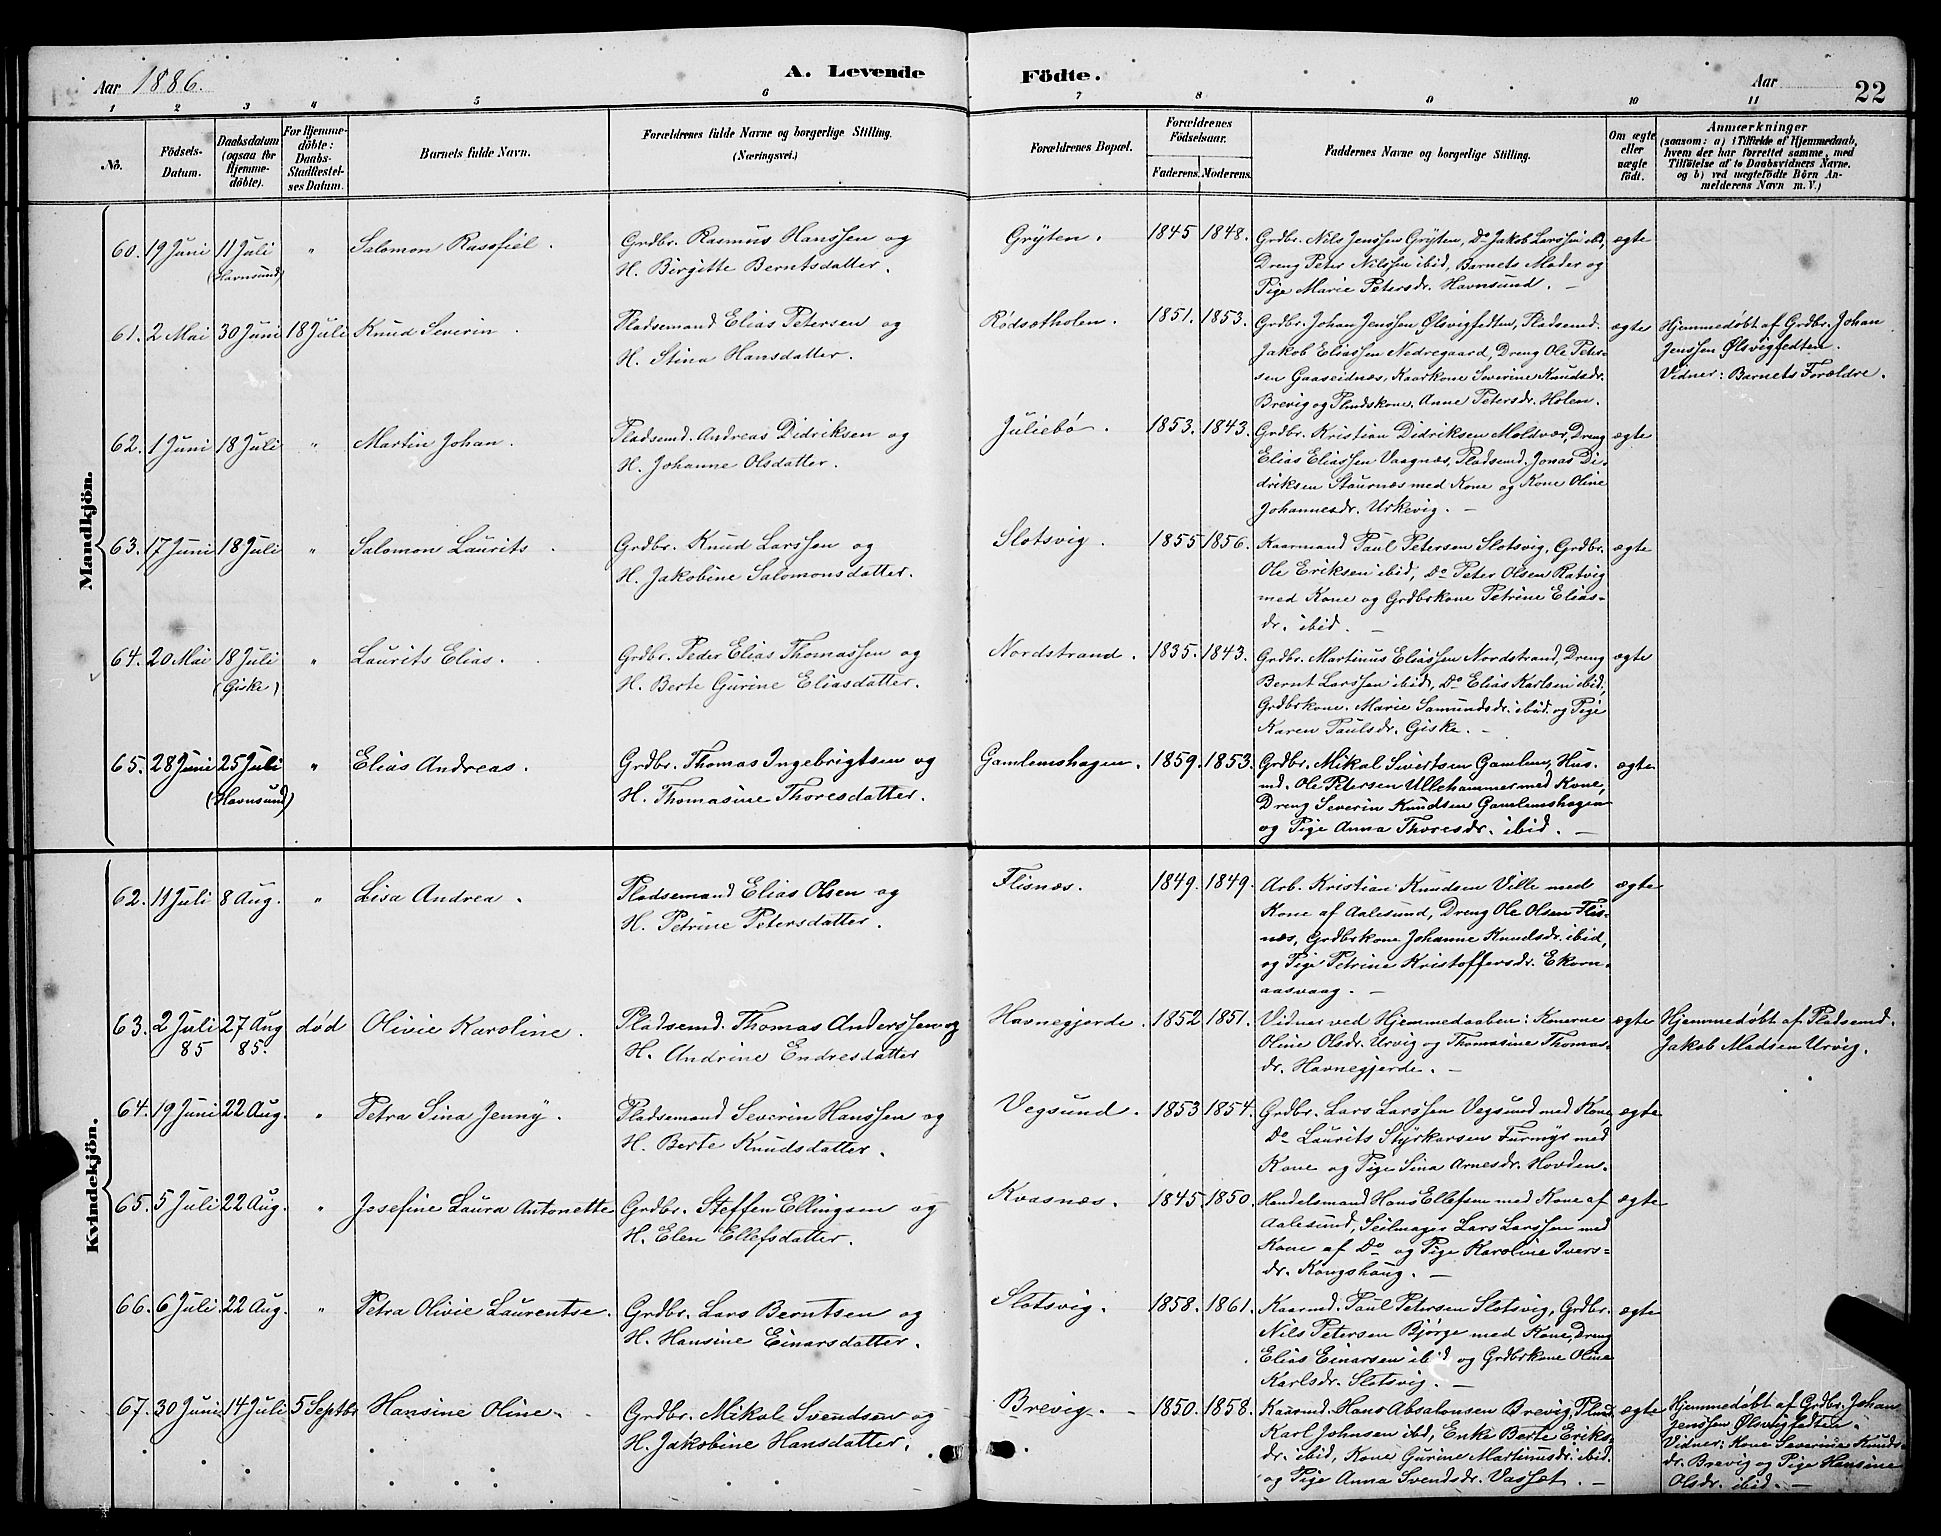 Aar 1886.
A. Levende Födte.
Aar
22
1 2 3 4 5 6 7 8 9 10 11
No.
Födsels-Datum.
Daabsdatum (ogsaa for Hjemmedöbte).
For Hjemmedöbte: Daabs-Stadfestelses Datum.
Barnets fulde Navn.
Forældrenes fulde Navne og borgerlige Stilling. (Næringsvei.)
Forældrenes Bopæl.
Forældrenes Födselsaar.
Faderens. Moderens.
Faddernes Navne og borgerlige Stilling.
Om ægte eller uægte födt.
Anmærkninger
(saasom: a) i Tilfælde af Hjemmedaab, hvem der har forrettet samme, med Tilföielse af to Daabsvidners Navne, og b) ved uægtefödte Börn Anmelderens Navn m. V.)
Mandkjön.
60. 19 Juni 11 Juli (Havnsund) " Salomon Rasfiel.
Grdbr. Rasmus Hanssen og
H. Birgitte Berntsdatter.
Gryten. 1845 1848.
Grdbr. Nils Jenssen Gryten, Do Jakob Larssen ibd,
Dreng Peter Nilssen ibid, Barnets Moder og
Pige Marie Petersdr. Havnsund. —
ægte
61. 2 Mai 30 Juni 18 Juli Knud Severin.
Pladsemand Elias Petersen og
H. Stina Hansdatter.
Rødsætholen. 1851. 1853.
Grdbr. Johan Jenssen Ølsvigfedten, Pladsemd.
Jakob Eliassen Nedregaard, Dreng Ole Peter-
sen Gaaseidnæs, Kaarkone Severine Knudsdr.
Brevig og Pladskone. Anne Petersdr. Holen.
ægte
Hjemmedøbt af Grdbr. Johan
Jenssen Ølsvigfedten.
Vidner: Barnets Forældre.
62. 1 Juni 18 Juli " Martin Johan.
Pladsemd. Andreas Didriksen og
H. Johanne Olsdatter.
Juliebø. 1853. 1843.
Grdbr. Kristian Didriksen Moldvær, Dreng
Elias Eliassen Vaagnæs, Pladsemd. Jonas Di-
driksen Staurnæs med Kone og Kone Oline
Johannesdr. Urkevig. —
ægte
63. 17 Juni 18 Juli " Salomon Laurits.
Grdbr. Knud Larssen og
H. Jakobine Salomonsdatter.
Slotsvig. 1855 1856.
Kaarmand Paul Petersen Slotsvig, Grdbr.
Ole Eriksen ibid, Do Peter Olsen Ratvig
med Kone og Grdbrkone Petrine Elias-
dr. ibid. —
ægte
64. 20 Mai 18 Juli (Giske) " Laurits Elias.
Grdbr. Peder Elias Thomassen og
H. Berte Gurine Eliasdatter.
Nordstrand. 1835. 1843.
Grdbr. Martinus Eliassen Nordstrand, Dreng
Bernt Larssen ibid, Do Elias Karlsen ibid,
Grdbrkone. Marie Samundsdr. ibid. og Pige
Karen Paulsdr. Giske. —
ægte
65. 28 Juni 25 Juli (Havnsund) " Elias Andreas.
Grdbr. Thomas Ingebrigtsen og
H. Thomasine Thoresdatter.
Gamlemshagen. 1859. 1853.
Grdbr. Mikal Sivertsen Gamlem, Hus-
md. Ole Petersen Ullehammer med Kone,
Dreng Severin Knudsen Gamlemshagen
og Pige Anna Thoresdr. ibid. —
ægte
Kvindekjön.
62. 11 Juli 8 Aug. " Lisa Andrea.
Pladsemand Elias Olsen og
H. Petrine Petersdatter.
Flisnæs. 1849. 1849.
Arb. Kristian Knudsen Ville med
Kone af Aalesund, Dreng Ole Olsen Flis-
næs, Grdbrkone Johanne Knudsdr. ibid,
og Pige Petrine Kristoffersdr. Ekorn-
aasvaag. —
ægte
63. 2 Juli 85 27 Aug 85. død Olivie Karoline.
Pladsemd. Thomas Anderssen og
H. Andrine Endresdatter
Havnegjerde. 1852 1851.
Vidner ved Hjemmedaaben: Konerne
Oline Olsdr. Urvig og Thomasine Thomas-
dr. Havnegjerde. —
ægte
Hjemmedøbt af Pladsemd.
Jakob Madsen Urvig.
64. 19 Juni 22 Aug. " Petra Sina Jenny.
Pladsemand Severin Hanssen og
H. Berte Knudsdatter.
Vegsund. 1853 1854.
Grdbr. Lars Larssen Vegsund med Kone,
Do Laurits Styrkarsen Furmyr med
Kone og Pige Sina Arnesdr. Hovden.
ægte
65. 5 Juli 22 Aug. " Josefine Laura Antonette
Grdbr. Steffen Ellingsen og
H. Elen Ellefsdatter.
Kvasnæs. 1845. 1850.
Handelsmand Hans Ellefsen med Kone af
Aalesund, Seilmager Lars Larssen med
Kone af Do og Pige Karoline Ivers-
dr. Kongshaug. —
ægte
66. 6 Juli 22 Aug. " Petra Olivie Laurentse.
Grdbr. Lars Berntsen og
H. Hansine Einarsdatter.
Slotsvig. 1858. 1861.
Kaarmd. Paul Petersen Slotsvig, Grdbr.
Nils Petersen Bjørge med Kone, Dreng
Elias Einarsen ibid og Grdbrkone Oline
Karlsdr. Slotsvig. —
ægte
67. 30 Juni 14 Juli 5 Septbr Hansine Oline.
Grdbr. Mikal Svendsen og
H. Jakobine Hansdatter.
Brevig. 1850. 1858.
Kaarmd. Hans Absalonsen Brevig, Plmd
Karl Johnsen ibd, Enke Berte Eriks-
dr. ibid, Kone Gurine Martinusdr. ibid.
og Pige Anna Svendsdr. Vasset. —
ægte
Hjemmedøbt af Grdbr. Johan
Jenssen Ølsvigfedten.
Vidner: Kone Severine Knuds-
dr. Brevig og Pige Hansine
Olsdr. ibid. —